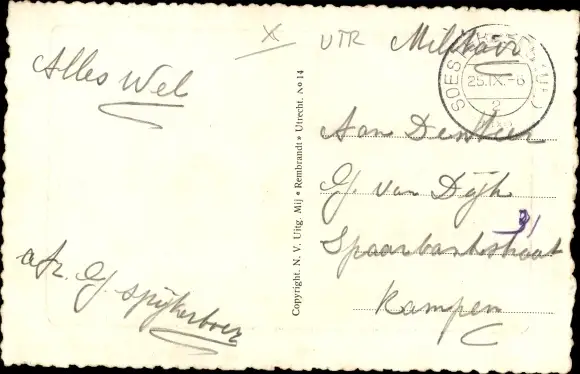 X UTR Militair
SOEST
25.IX.-6
2
Alles Wel
Aan Den Heer
G. van Dijk
31
Spaarbankstraat
Kampen
afz. G. Spijkerboer
Copyright. N. V. Uitg. Mij « Rembrandt » Utrecht. No 14